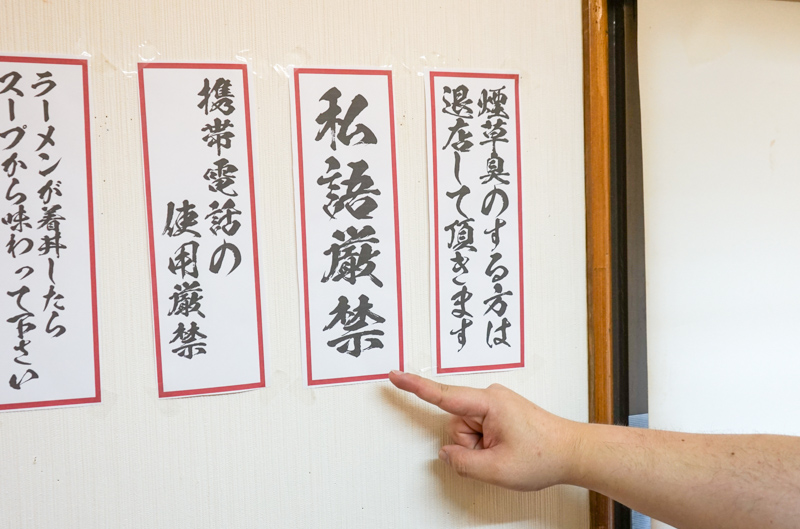 煙草臭のする方は
退店して頂きます
私語厳禁
携帯電話の
使用厳禁
ラーメンが着丼したら
スープから味わって下さい